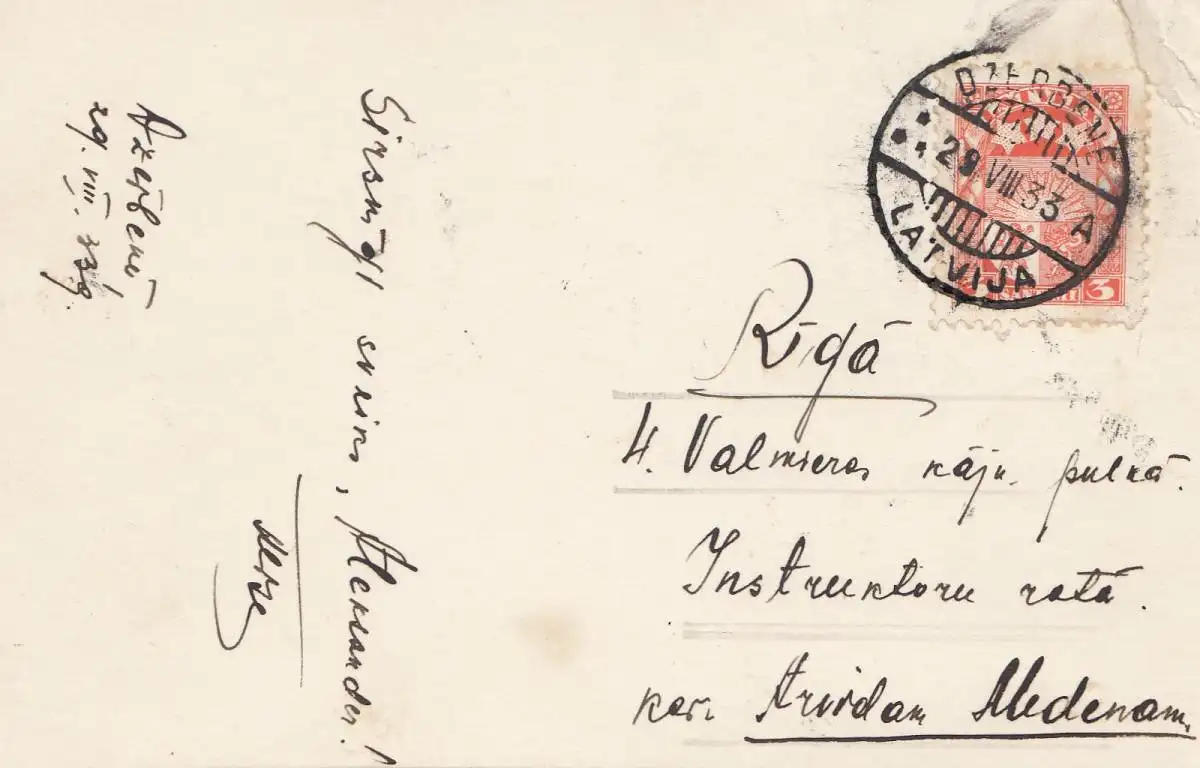 Dzērbenē
29. VIII. 33g.
Sirsnīgi sveiks, Aleksander!
DZĒRBENE
29 VIII 33 A
LATVIJA
3
Rīgā
4. Valmieras kāju. pulkā.
Instruktoru rotā.
kar. Arvīdam Medenam.